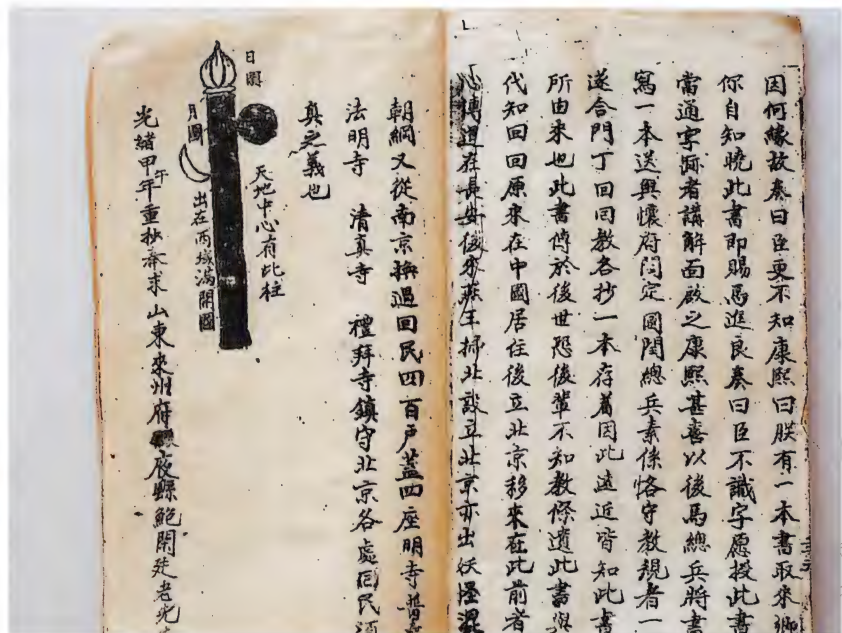 因何緣故奏曰臣更不知康熙曰朕有一本書取來卿
你自知曉此書即賜馬進良奏曰臣不識字愿授此書
當通字跡者講解面啟之康熙甚喜以後馬總兵將書
寫一本送與懷府閆定國閆總兵素係恪守教規者一
遂合門丁回回教各抄一本存着因此遠近皆知此書
所由來也此書傳於後世恐後輩不知教條遺此書與
代知回回原來在中國居住後立北京移來在此前者
心傳道存長安後來燕王掃北設立北京亦出妖怪混
朝綱又從南京撫過回民四百戶蓋四座明寺普
法明寺 清真寺 禮拜寺鎮守北京各處回民
真之義也
日圓
天地中心有此柱
月圓
出在西域滿開國
光緒甲午年重抄奔求山東萊州府掖縣鮑開廷老